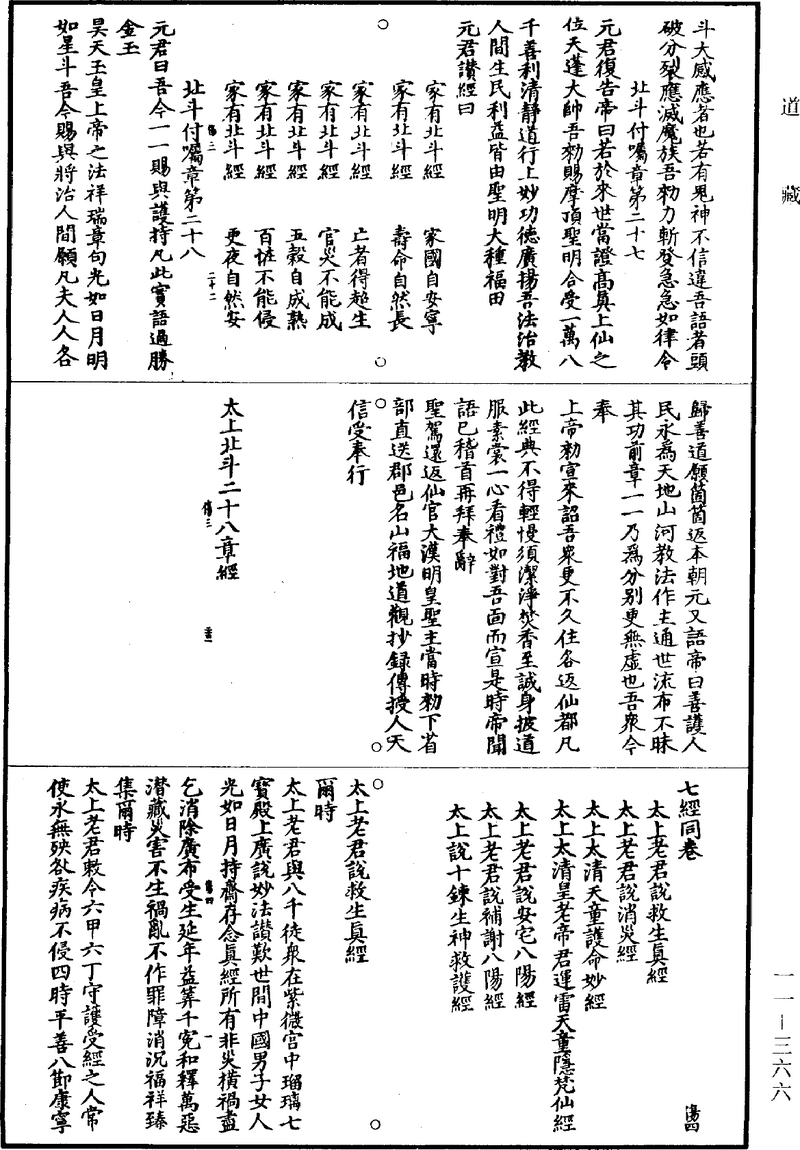 道藏
一一—三六六
斗大感應者也若有鬼神不信違吾語者頭
破分裂應滅魔族吾勑力斬發急急如律令
北斗付囑章第二十七
元君復告帝曰若於來世當證高真上仙之
位天蓬大帥吾勑賜摩頂聖明合受一萬八
千善利清靜道行上妙功德廣揚吾法治教
人間生民利益皆由聖明大種福田
元君讚經曰
家有北斗經　家國自安寧
家有北斗經　壽命自然長
家有北斗經　亡者得超生
家有北斗經　官災不能成
家有北斗經　五穀自成熟
家有北斗經　百怪不能侵
家有北斗經　更夜自然安
北斗付囑章第二十八
元君曰吾今一一賜與護持凡此寶語過勝
金玉
昊天玉皇上帝之法祥瑞章句光如日月明
如星斗吾今賜與將治人間願凡夫人人各
歸善道願箇箇返本朝元又語帝曰善護人
民永為天地山河教法作主通世流布不昧
其功前章一一乃為分別更無虛也吾衆今
奉
上帝勑宣來詔吾衆更不久住各返仙都凡
此經典不得輕慢須潔淨焚香至誠身披道
服素裳一心看禮如對吾面而宣是時帝聞
語已稽首再拜奉辭
聖駕還返仙官大漢明皇聖主當時勑下省
部直送郡邑名山福地道觀抄錄傳授人天
信受奉行
太上北斗二十八章經
七經同卷
太上老君說救生真經
太上老君說消災經
太上太清天童護命妙經
太上太清皇老帝君運雷天童隱梵仙經
太上老君說安宅八陽經
太上老君說補謝八陽經
太上說十鍊生神救護經
傷四
太上老君說救生真經
爾時
太上老君與八千徒衆在紫微宮中瑠璃七
寶殿上廣說妙法讚歎世間中國男子女人
光如日月持齋存念真經所有非災橫禍盡
乞消除廣布受生延年益算千寃和釋萬惡
潛藏災害不生禍亂不作罪障消況福祥臻
集爾時
太上老君敕令六甲六丁守護受經之人常
使永無殃欻疾病不侵四時平善八節康寧